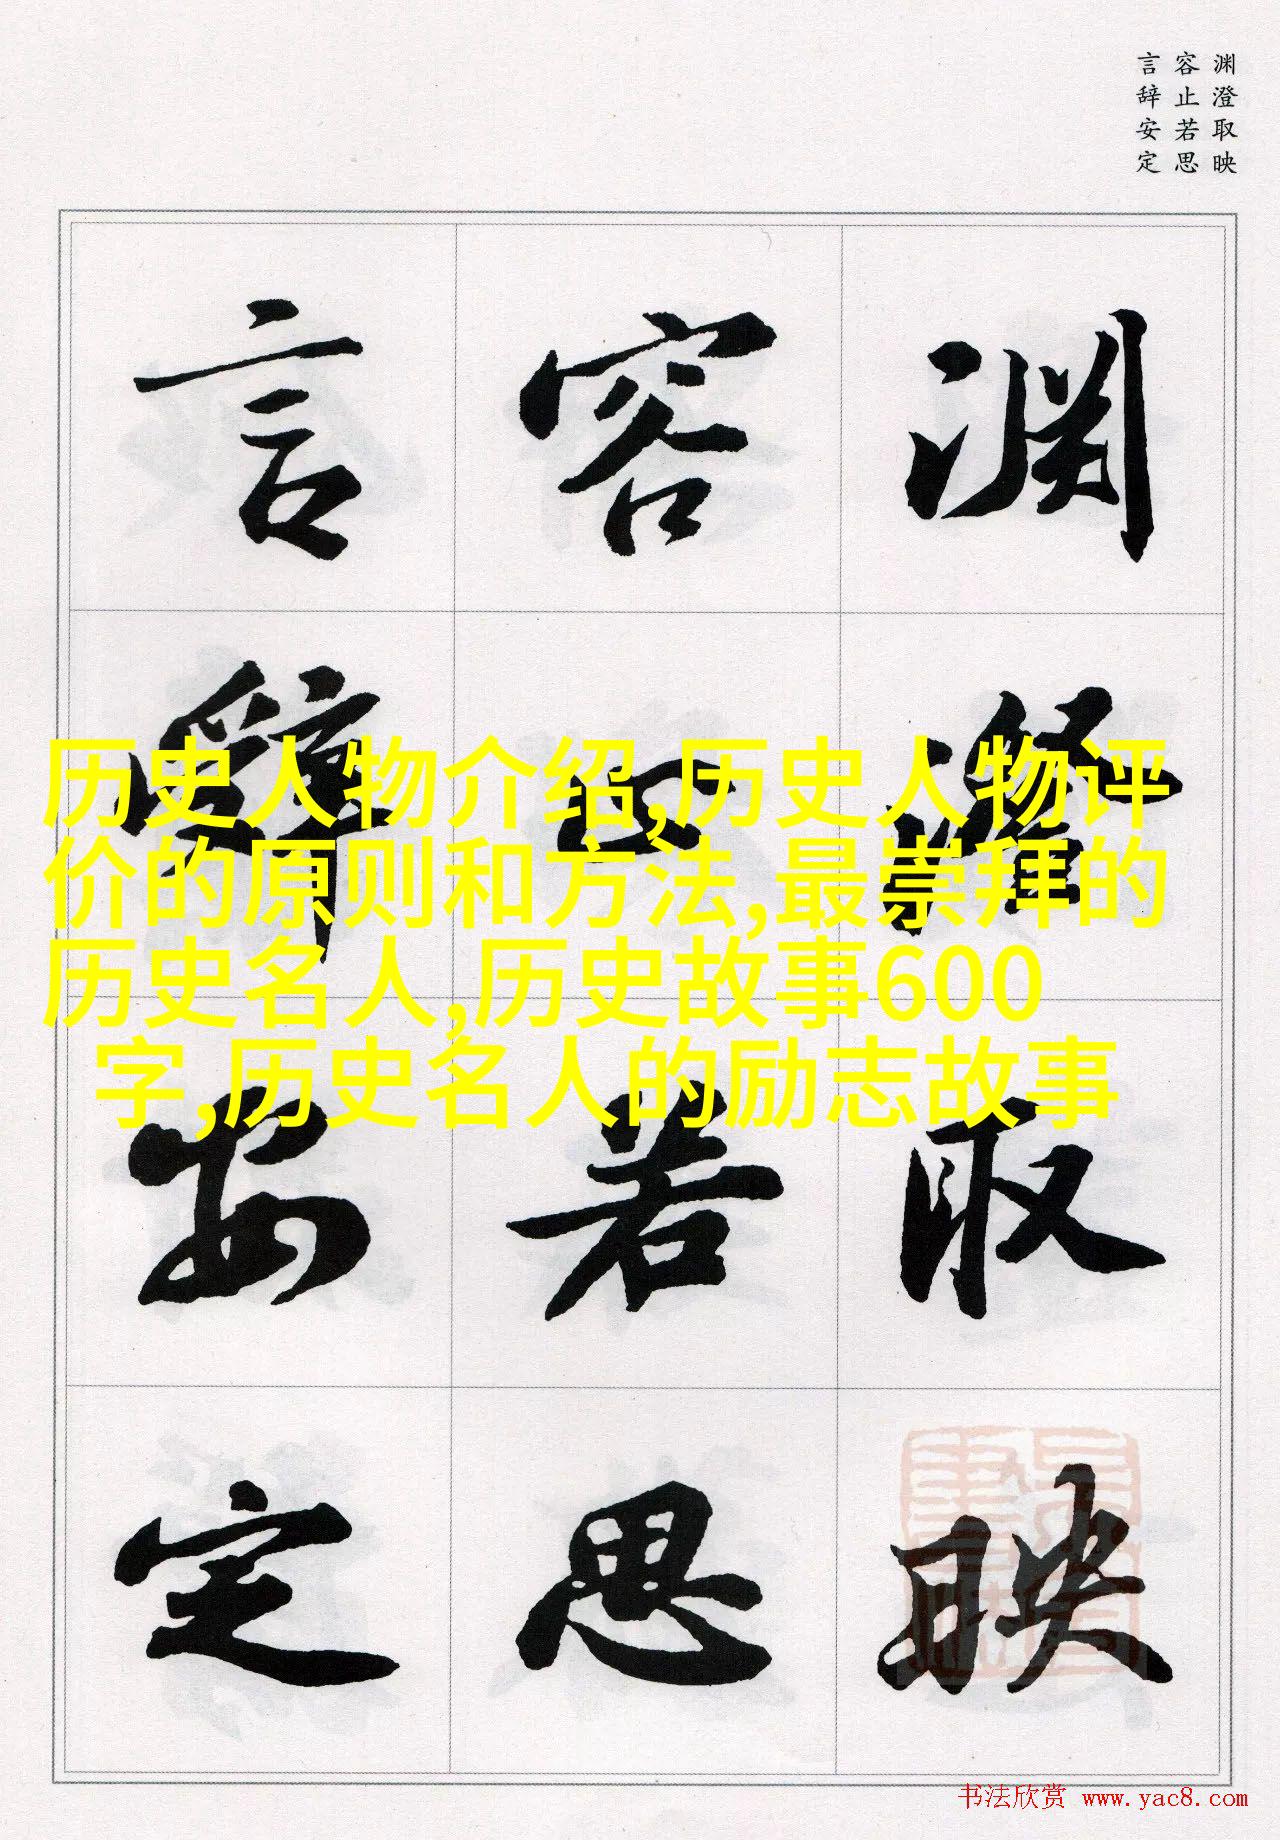 渊澄取映
容止若思
言辞安定
渊澄取映
容止若思
言辞安定
历史人物介绍,历史人物评
价的原则和方法,最崇拜的
历史名人,历史故事600
字,历史名人的励志故事
书法欣赏 www.yac8.com